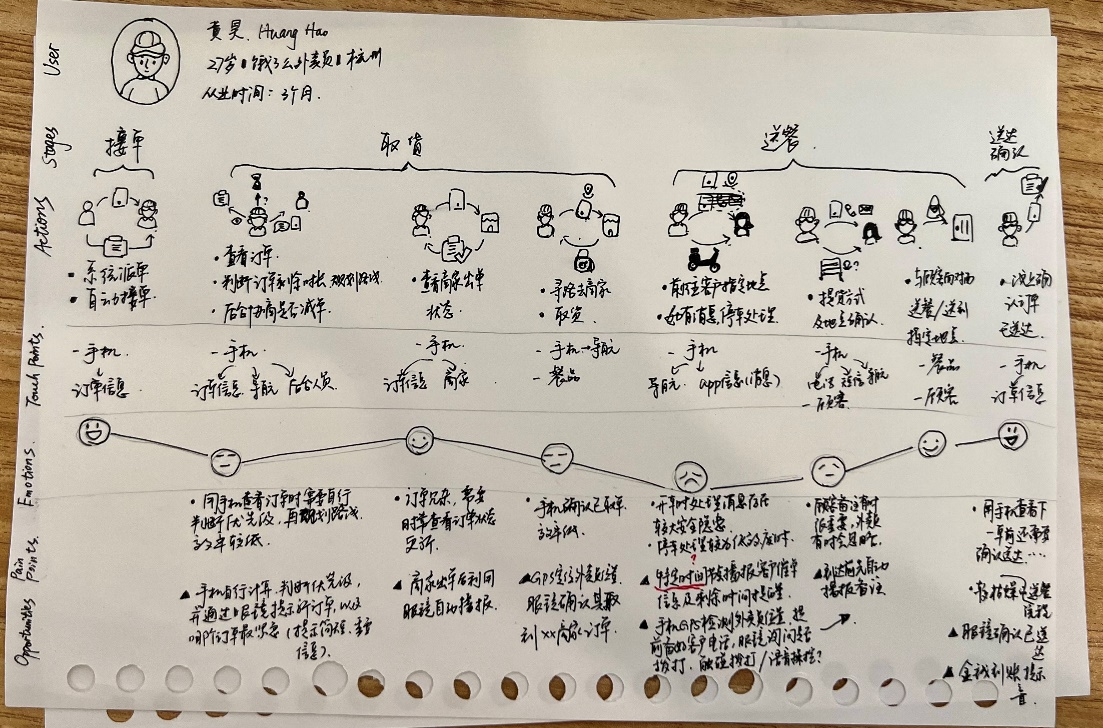 User
黄昊. Huang Hao
27岁 饿了么外卖员 杭州
从业时间：3个月.
Stages
接单
取货
送餐
送达
确认
Actions
• 系统派单
• 自动接单
• 查看订单.
• 判断订单剩余时长 规划路线
• 后台协商是否减单
• 查看商家出单
状态.
• 寻路去商家
• 取货
• 前往客户指定地点
• 如有消息,停车处理.
• 提货方式
及地点确认.
• 与顾客面对面
送餐/送到
指定地点.
• 线上确
认订单
已送达.
Touch Points.
- 手机
订单信息
- 手机.
订单信息 导航 后台人员.
- 手机
订单信息 商家
- 手机→导航
- 餐品
- 手机
导航. app信息(消息)
- 手机
电话 短信 导航
- 顾客.
- 餐品
- 顾客
- 手机
订单信息
Emotions
Pain Points.
• 用手机查看订单时需要自行
判断优先级,再规划路线.
效率较低.
• 订单冗杂,需要
时常查看订单状态
更新.
• 手机确认已取单
效率低.
• 开车时处理消息存在
较大安全隐患.
• 停车处理较为低效废时.
• 顾客备注有时
很重要,外卖员
有时会忽略.
• 用手机查看下
一单前还需要
确认送达...
Opportunities
▲ 手机自行计算,判断优先级,
并通过眼镜提示新订单,以及
哪个订单最紧急(提示简短,主要
信息).
▲ 商家出单后利用
眼镜自动播报.
▲ GPS定位外卖位置
眼镜确认其取
到xx商家订单.
?
▲ 特定时间节点播报客户催单
信息及剩余时间提醒.
▲ 手机GPS检测外卖员位置,提
前备好客户电话,眼镜询问是否
拨打. 触碰拨打/语音操控?
▲ 到达前先自动
播报备注
▲ 眼镜确认已送
达
▲ 金钱到账提示
音.